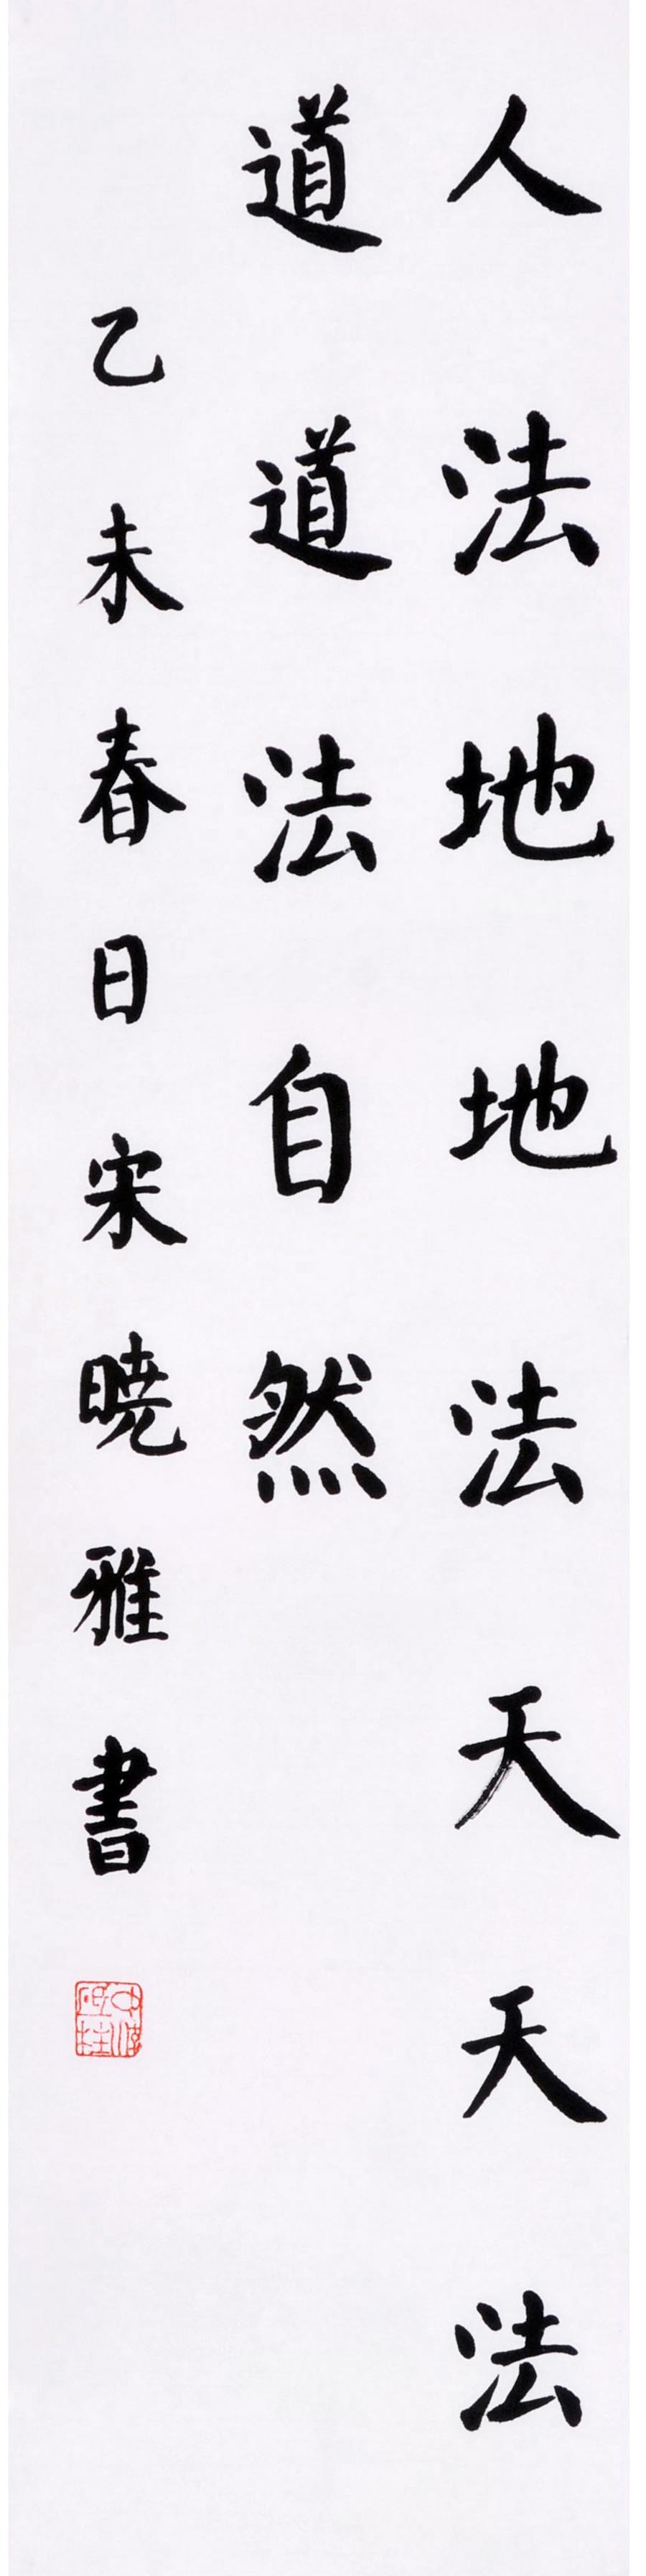 人法地地法天天法
道道法自然
乙未春日宋曉雅書